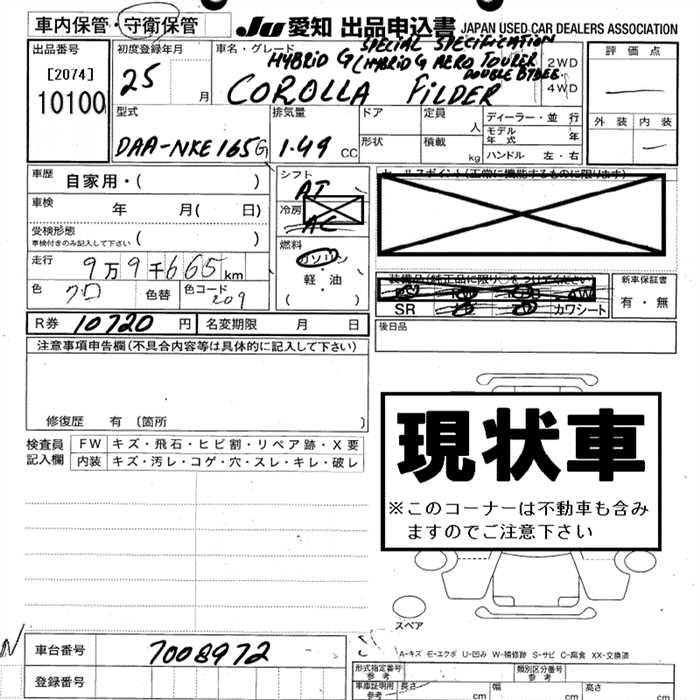 車内保管・守衛保管 JU 愛知 出品申込書 JAPAN USED CAR DEALERS ASSOCIATION
出品番号 初度登録年月 車名・グレード 評価点
[2074] 25 月 HYBRID G (HYBRID G AERO TOURER 2WD
SPECIAL SPECIFICATION
10100 COROLLA FILDER 4WD
外装 内装
型式 排気量 ドア 定員 人 ディーラー・並 行
DAA-NKE165G 1.49 CC 形状 積載 kg モデル年式 年
ハンドル 左・右
車歴 自家用・( ) シフト AT
車検 年 月( 日) 冷房 AC
受検形態
車検付きのみ記入して下さい ( )
燃料 ガソリン
走行 9万9千665km 軽・油
( )
色 クロ 色替 色コード 209
SR カワシート
新車保証書
有・無
R券 10720 円 名変期限 月 日
後日品
注意事項申告欄(不具合内容等は具体的に記入して下さい)
修復歴 有 〔箇所 〕
検査員記入欄 FW キズ・飛石・ヒビ割・リペア跡・X要
内装 キズ・汚レ・コゲ・穴・スレ・キレ・破レ
現状車
※このコーナーは不動車も含み
ますのでご注意下さい
スペア
A-キズ E-エクボ U-凹み W-補修跡 S-サビ C-腐食 XX-交換済
車台番号 7008972
登録番号
形式指定番号 参考 類別区分番号 参考
車庫証明用 参考 長さ cm 幅 cm 高さ cm